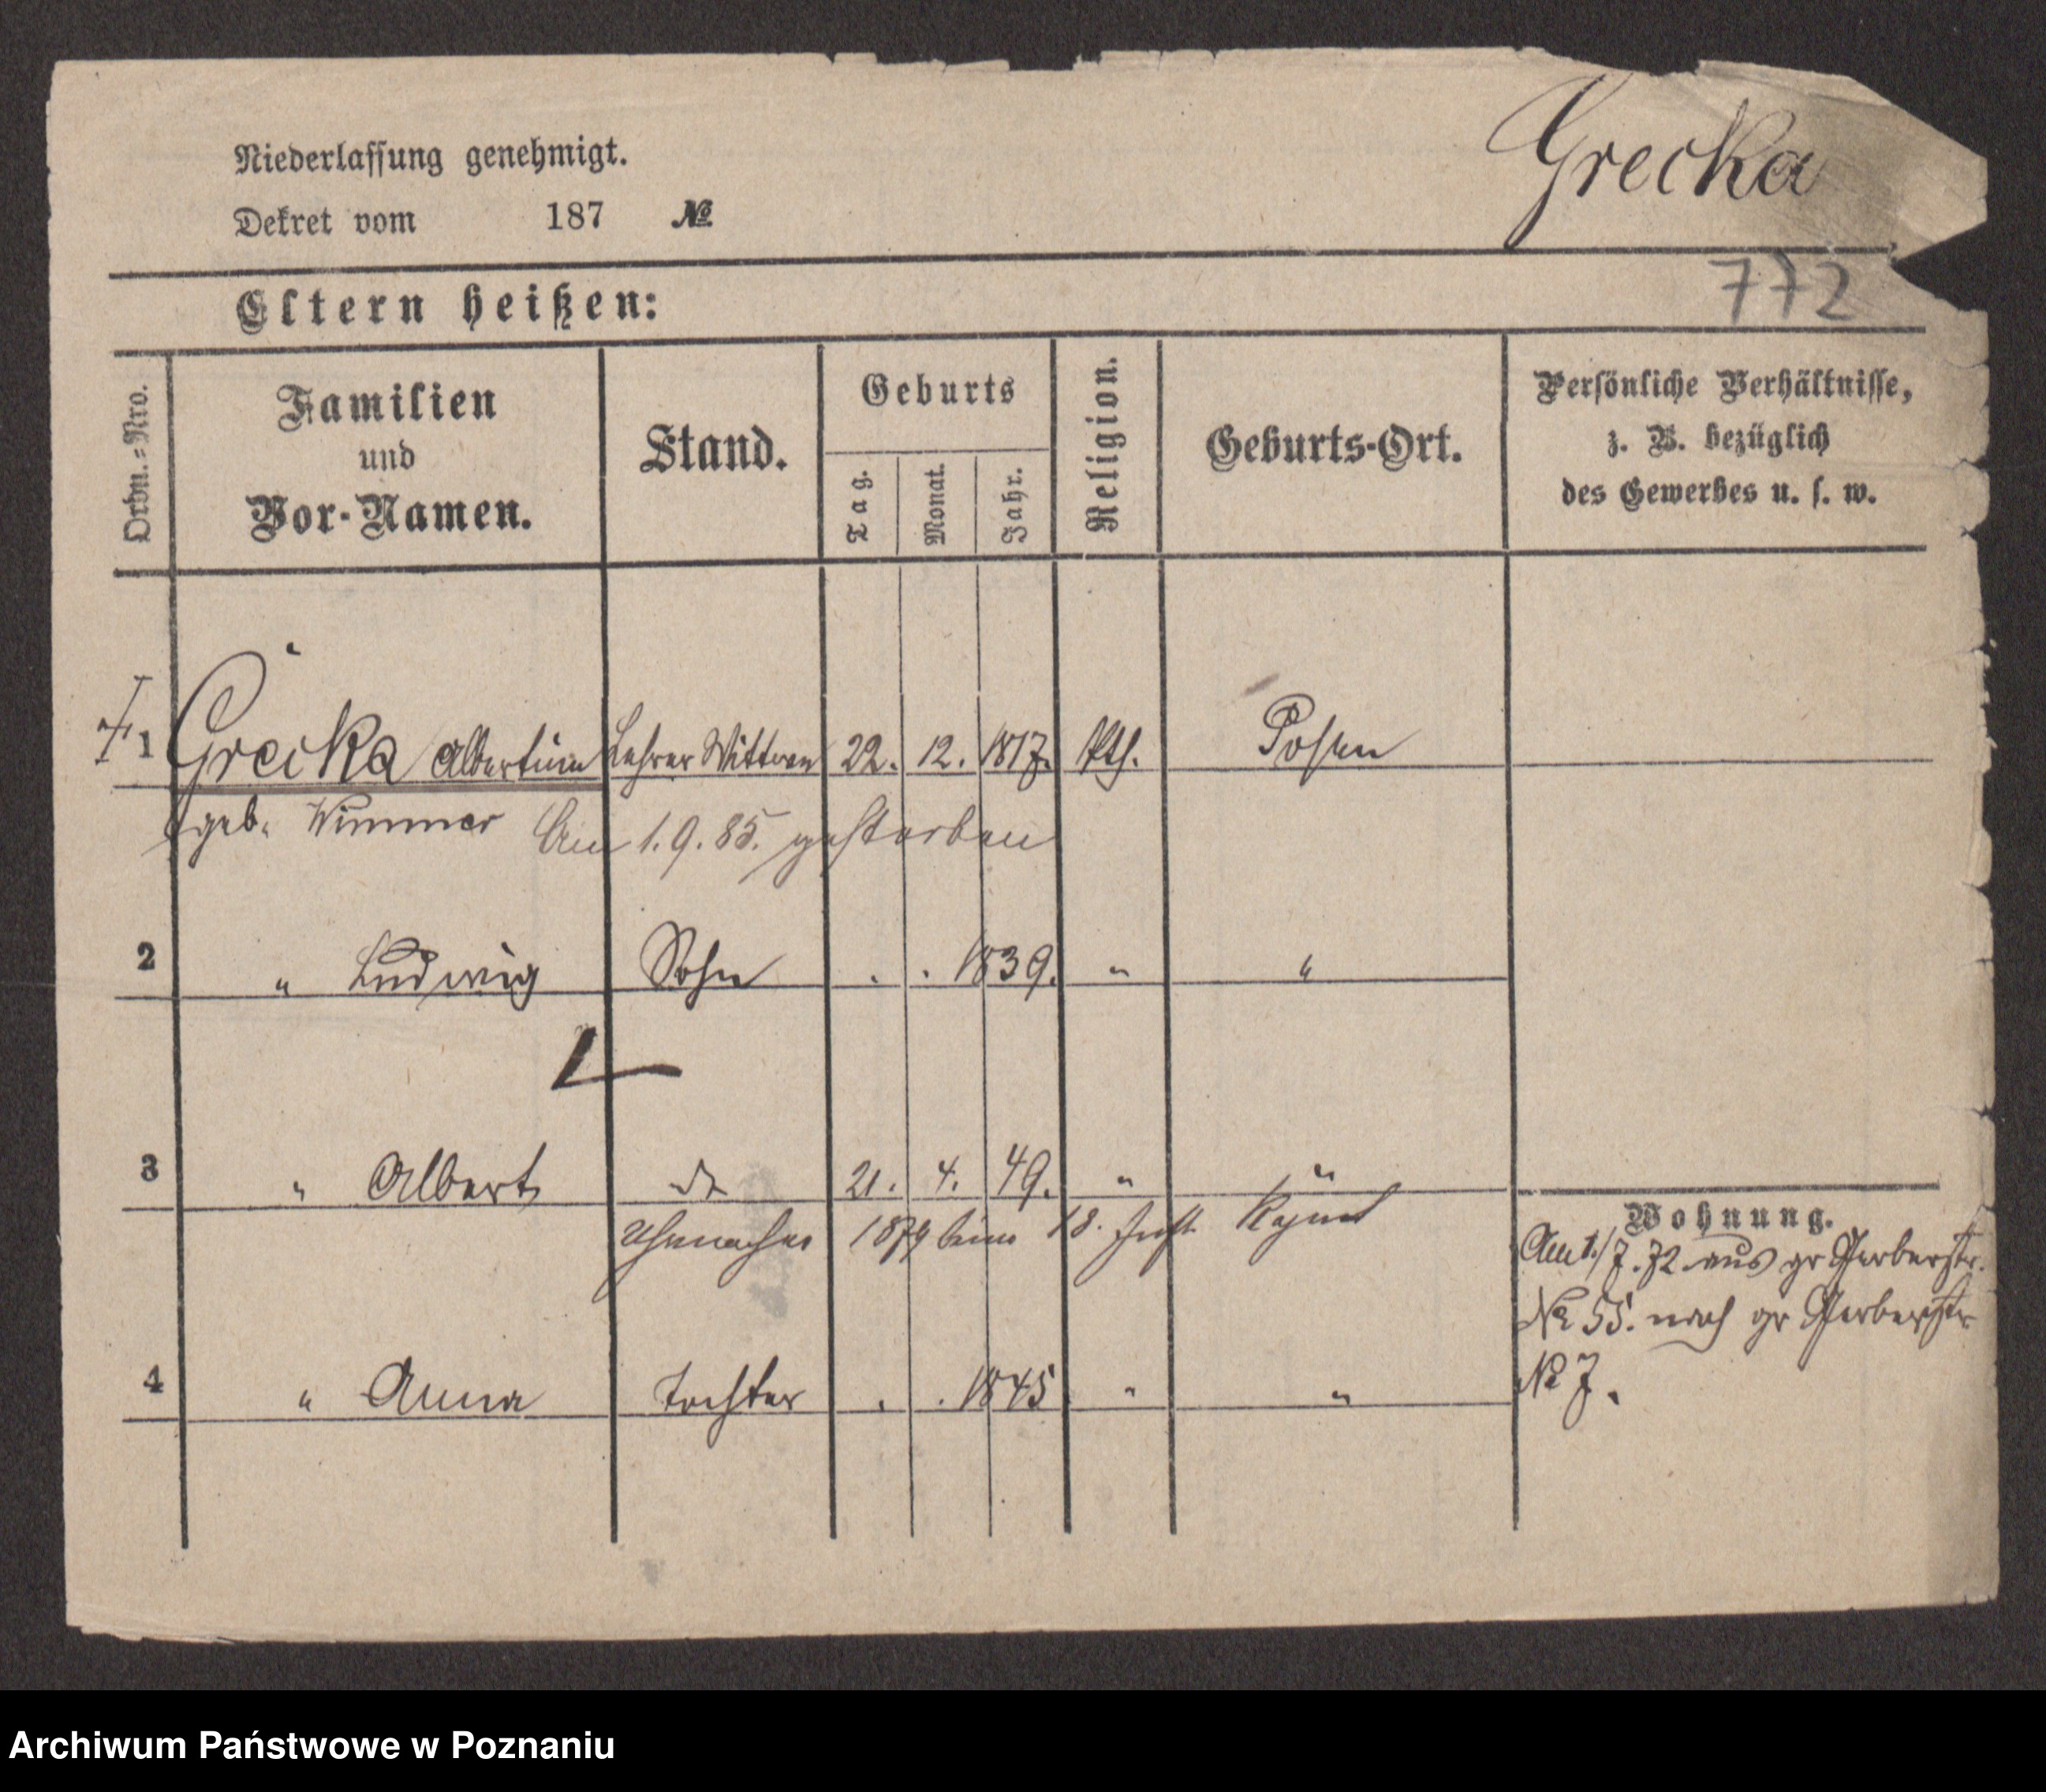 Niederlassung genehmigt.
Grecka
Dekret vom 187 №
772
Eltern heißen:
Ordn.-Nro.
Familien und Vor-Namen.
Stand.
Geburts
Tag.
Monat.
Jahr.
Religion.
Geburts-Ort.
Persönliche Verhältnisse,
z. B. bezüglich
des Gewerbes u. s. w.
1 Grecka Albertine Lehrer Wittwe 22. 12. 1817. kth. Posen
geb. Wimmer Am 1.9.85. gestorben
2 " Ludwig Sohn . . 1839. " "
3 " Albert do 21. 4. 49. " "
Uhrmacher 1879 beim 18. Inft.
Wohnung.
Am 1./7.72 aus gr Gerberstr.
No 55. nach gr Gerberstr
No 7.
4 " Anna Tochter . . 1845 " "
Archiwum Państwowe w Poznaniu